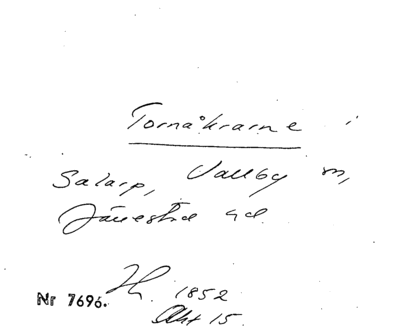 Tornåkrarne i
Salarp, Vallby m,
Järrestad sd.
Nr 7696. H. 1852
Akt 15.